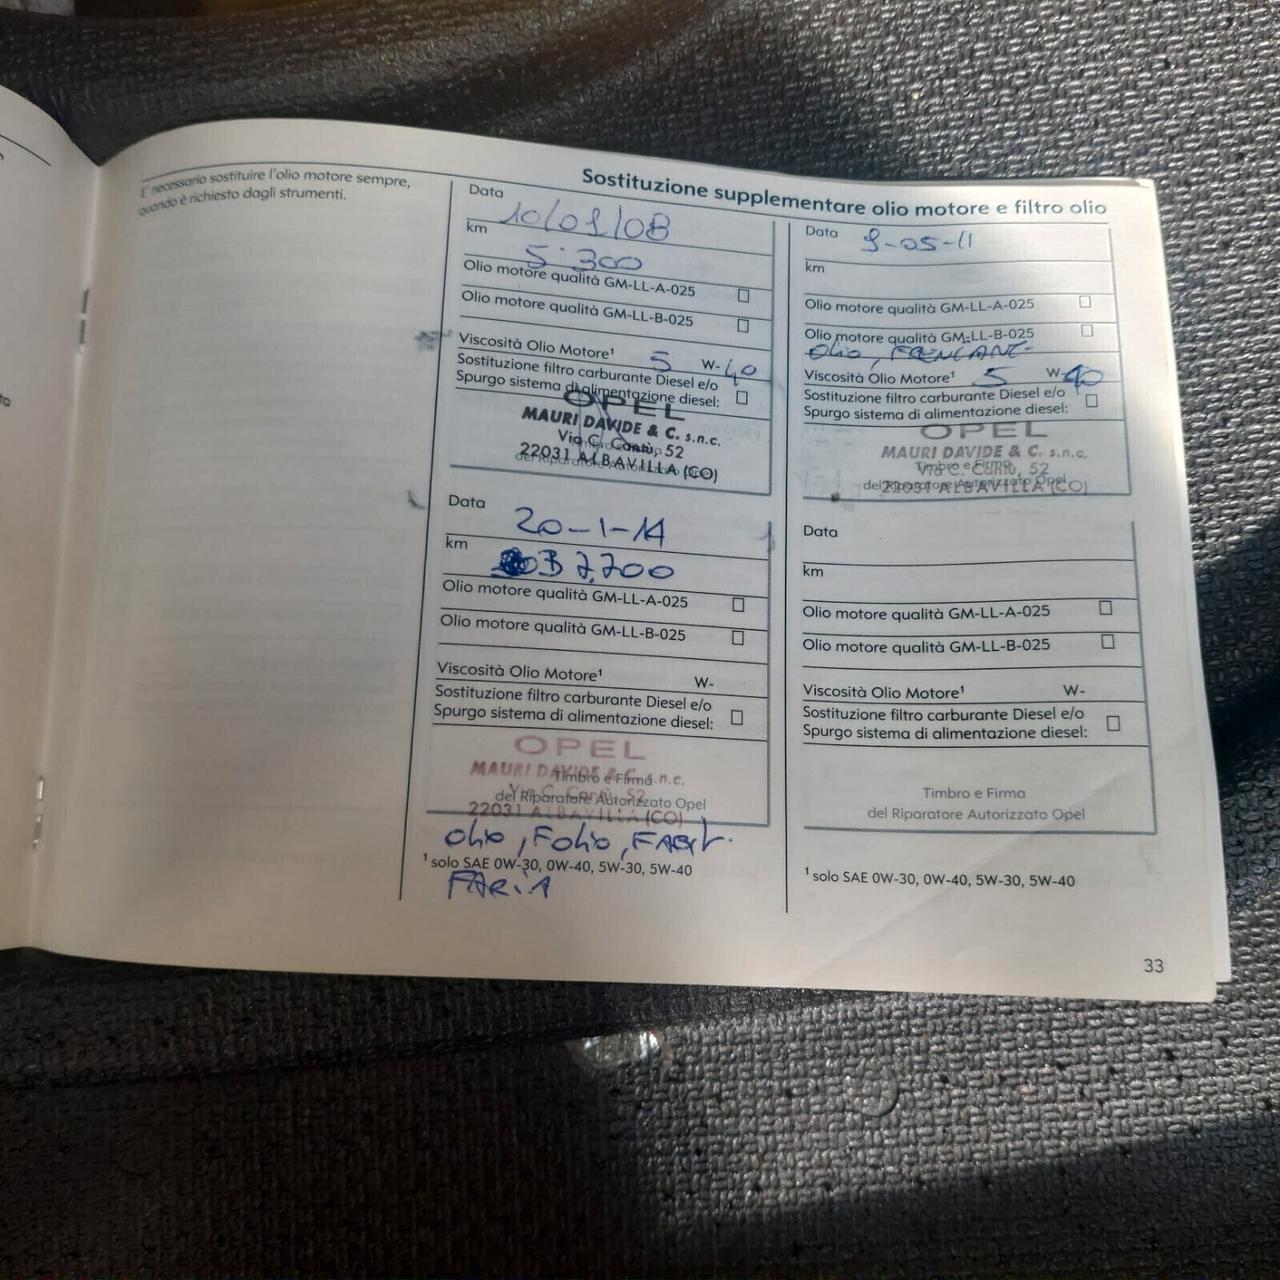 E' necessario sostituire l'olio motore sempre,
quando è richiesto dagli strumenti.
Sostituzione supplementare olio motore e filtro olio
Data 10/01/08
km 5.300
Olio motore qualità GM-LL-A-025
Olio motore qualità GM-LL-B-025
Viscosità Olio Motore¹ 5 W-40
Sostituzione filtro carburante Diesel e/o
Spurgo sistema di alimentazione diesel:
OPEL
MAURI DAVIDE & C. s.n.c.
Via C. Cantù, 52
22031 ALBAVILLA (CO)
Data 20-1-14
km 37.700
Olio motore qualità GM-LL-A-025
Olio motore qualità GM-LL-B-025
Viscosità Olio Motore¹ W-
Sostituzione filtro carburante Diesel e/o
Spurgo sistema di alimentazione diesel:
OPEL
MAURI DAVIDE & C. s.n.c.
Timbro e Firma
Via C. Cantù, 52
del Riparatore Autorizzato Opel
22031 ALBAVILLA (CO)
Olio, Folio,
¹ solo SAE 0W-30, 0W-40, 5W-30, 5W-40
FARIA
Data 9-05-11
km
Olio motore qualità GM-LL-A-025
Olio motore qualità GM-LL-B-025
Olio,
Viscosità Olio Motore¹ 5 W-40
Sostituzione filtro carburante Diesel e/o
Spurgo sistema di alimentazione diesel:
OPEL
MAURI DAVIDE & C. s.n.c.
Timbro e Firma
Via C. Cantù, 52
del Riparatore Autorizzato Opel
22031 ALBAVILLA (CO)
Data
km
Olio motore qualità GM-LL-A-025
Olio motore qualità GM-LL-B-025
Viscosità Olio Motore¹ W-
Sostituzione filtro carburante Diesel e/o
Spurgo sistema di alimentazione diesel:
Timbro e Firma
del Riparatore Autorizzato Opel
¹ solo SAE 0W-30, 0W-40, 5W-30, 5W-40
33